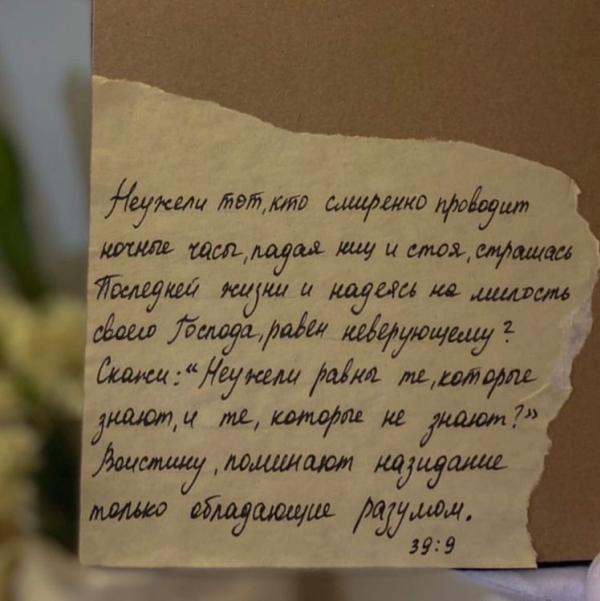 Неужели тот, кто смиренно проводит
ночные часы, падая ниц и стоя, страшась
Последней жизни и надеясь на милость
своего Господа, равен неверующему?
Скажи: "Неужели равны те, которые
знают, и те, которые не знают?"
Воистину, поминают назидание
только обладающие разумом.
39:9